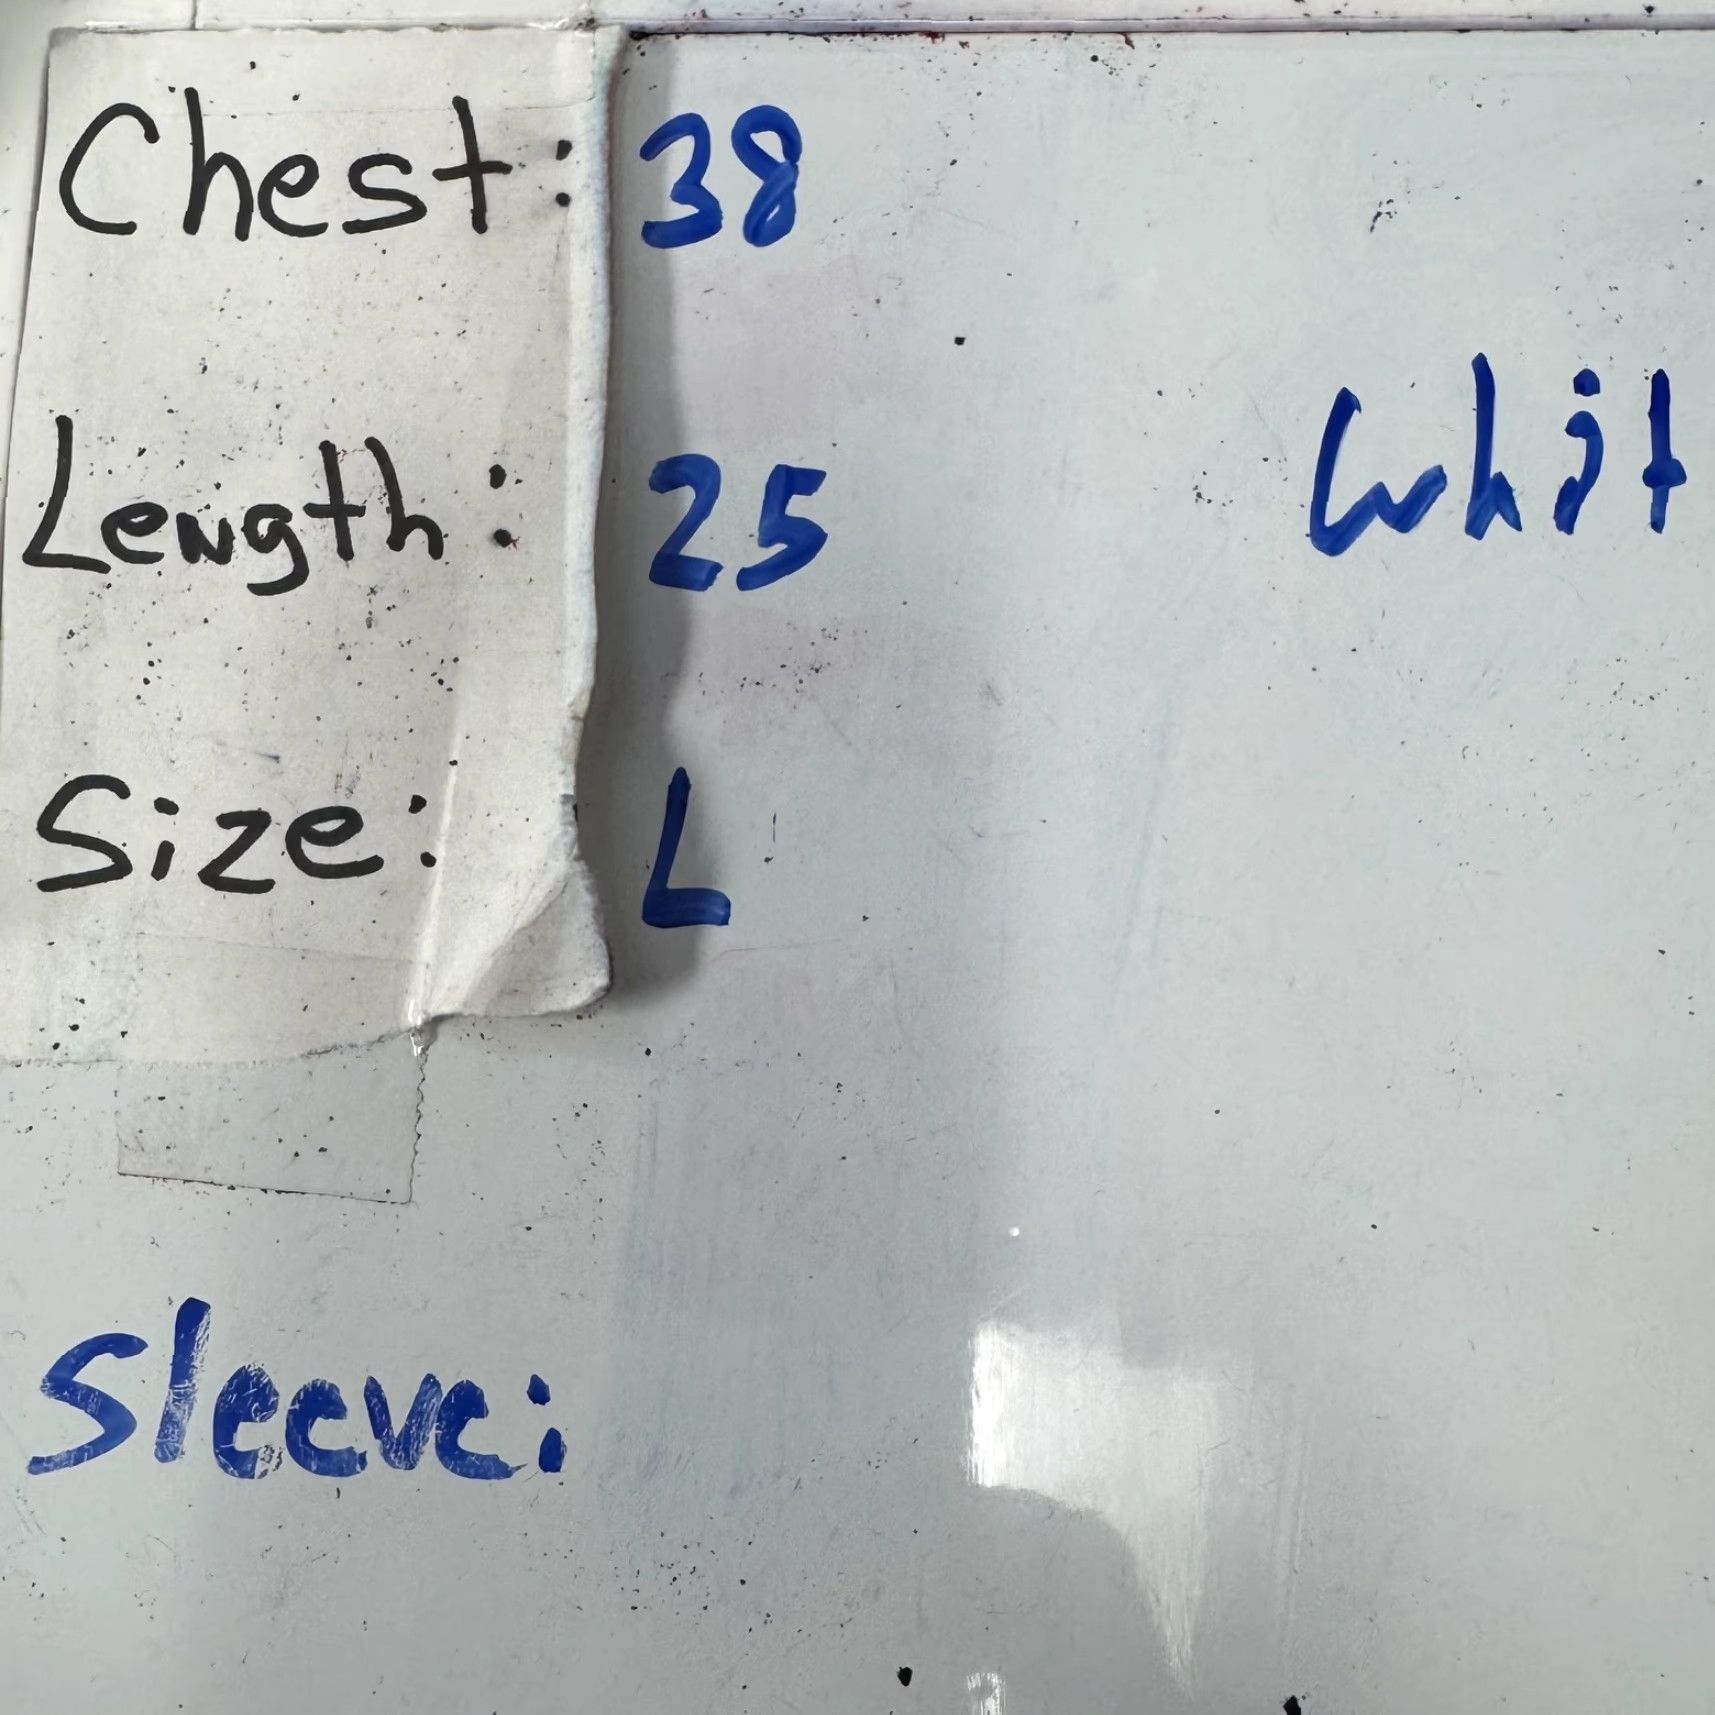 Chest: 38
Length: 25
Whit
Size: L
Sleeve: